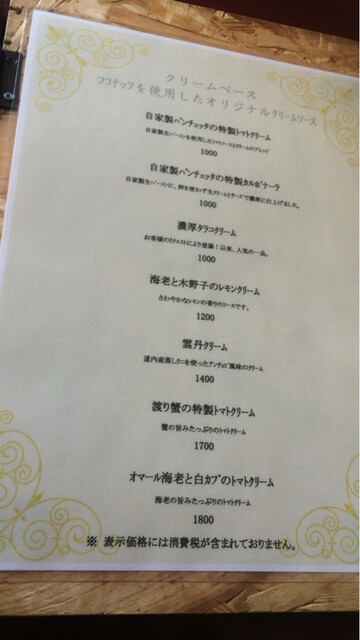 クリームベース
ココナッツを使用したオリジナルクリームソース
自家製パンチェッタの特製トマトクリーム
自家製生ベーコンを使用したトマトソースとクリームのブレンド
1000
自家製パンチェッタの特製カルボナーラ
自家製生ベーコンに、卵を使わず生クリームとチーズで濃厚に仕上げました。
1000
濃厚タラコクリーム
お客様のリクエストにより登場!以来、人気の一品。
1000
海老と木野子のレモンクリーム
さわやかなレモンの香りのソースです。
1200
雲丹クリーム
道内産蒸しウニを使ったアンチョビ風味のクリーム
1400
渡り蟹の特製トマトクリーム
蟹の旨みたっぷりのトマトクリーム
1700
オマール海老と白カブのトマトクリーム
海老の旨みたっぷりのトマトクリーム
1800
※ 表示価格には消費税が含まれておりません。